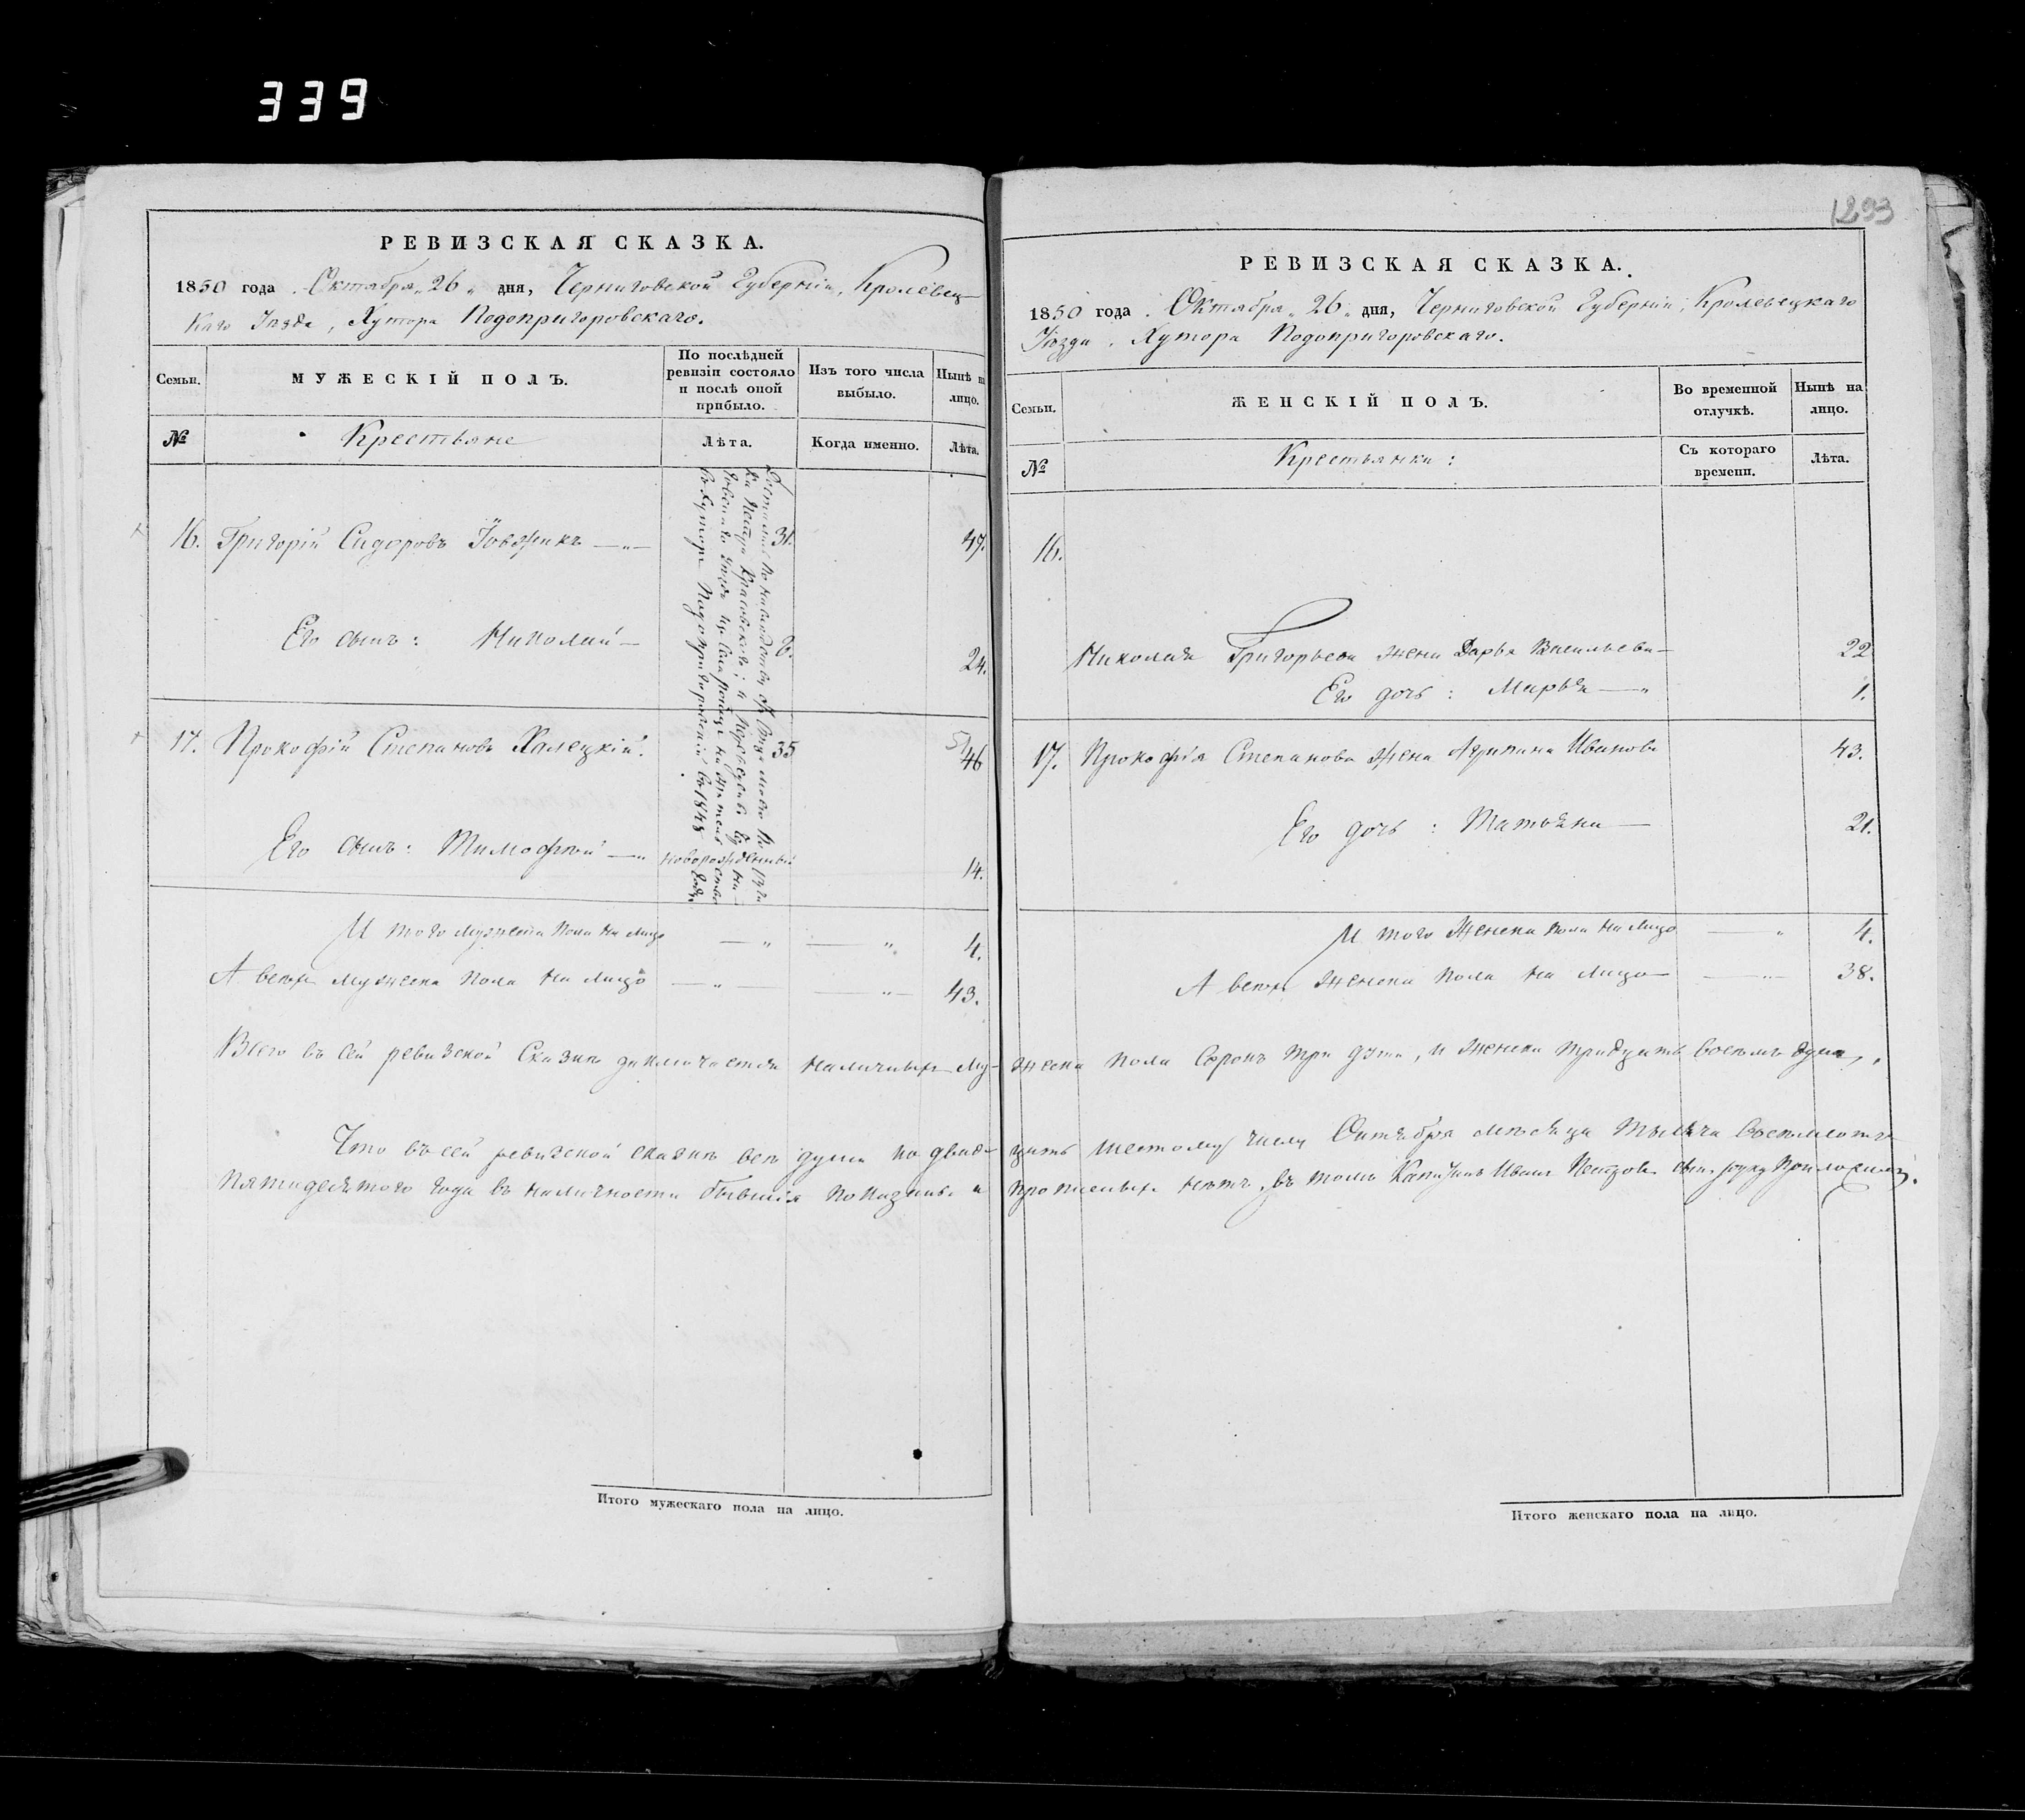 339
1293
РЕВИЗСКАЯ СКАЗКА.
1850 года Октября „26„ дня, Черниговской Губерніи, Кролевец-
каго Уѣзда, Хутора Подопригоровскаго.
Семьи.
МУЖЕСКІЙ ПОЛЪ.
По послѣдней ревизіи состояло и послѣ оной прибыло.
Изъ того числа выбыло.
Нынѣ на лицо.
№
Крестьяне
Лѣта.
Когда именно.
Лѣта.
16. Григорій Сидоровъ Іовжикъ 31. 47.
Его сынъ: Николай 24.
17. Прокофій Степановъ Халецкій. 35 46
Его сынъ: Тимофей новорожденный 14.
въ Хуторъ Подопригоровскій въ 1848 году
И того мужеска пола на лицо 4.
А всѣхъ мужеска пола на лицо 43.
Всего въ сей ревизской Сказкѣ заключается наличныхъ му-
Что въ сей ревизской сказкѣ всѣ души по двад-
пятидесятаго года въ наличности бывшія показаны и
Итого мужескаго пола на лицо.
РЕВИЗСКАЯ СКАЗКА.
1850 года Октября „26„ дня, Черниговской Губерніи, Кролевецкаго
Уѣзда, Хутора Подопригоровскаго.
Семьи.
ЖЕНСКІЙ ПОЛЪ.
Во временной отлучкѣ.
Нынѣ на лицо.
№
Крестьянки:
Съ котораго времени.
Лѣта.
16.
Николая Григорьева жена Дарья Васильева 22
Его дочь: Марья 1.
17. Прокофія Степанова жена Агрипина Иванова 43.
Его дочь: Татьяна 21.
И того женска пола на лицо 4.
А всѣхъ женска пола на лицо 38.
жеска пола Сорокъ три души, и женска тридцать восемь душъ,
цать шестому числу Октября мѣсяца тысяча восемьсотъ
прописныхъ нѣтъ, въ томъ Капитанъ Иванъ Петровъ сынъ руку приложилъ.
Итого женскаго пола на лицо.